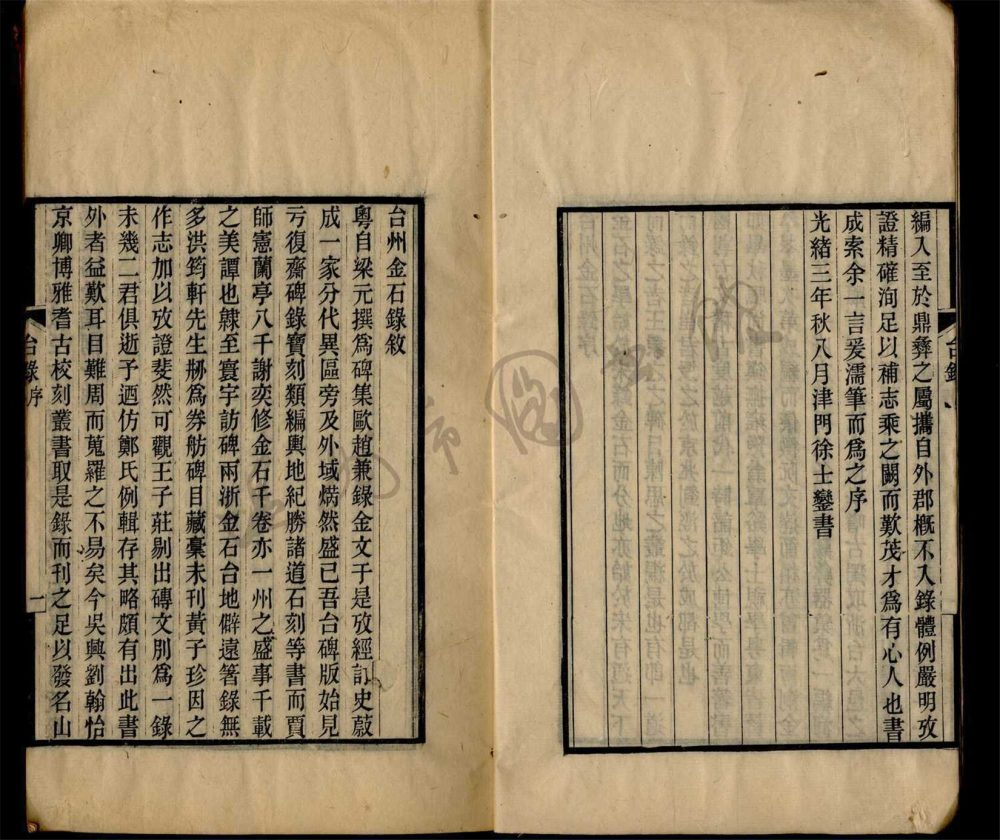 編入至於鼎彝之屬攜自外郡概不入錄體例嚴明攷
證精確洵足以補志乘之闕而歎茂才爲有心人也書
成索余一言爰濡筆而爲之序
光緒三年秋八月津門徐士鑾書
台州金石錄敘
粵自梁元撰爲碑集歐趙兼錄金文于是攷經訂史蔚
成一家分代異區旁及外域煥然盛已吾台碑版始見
亏復齋碑錄寶刻類編輿地紀勝諸道石刻等書而賈
師憲蘭亭八千謝奕修金石千卷亦一州之盛事千載
之美譚也隸至寰宇訪碑兩浙金石台地僻遠箸錄無
多洪筠軒先生刱爲券舫碑目藏稾未刊黃子珍因之
作志加以攷證斐然可觀王子莊剔出磚文別爲一錄
未幾二君俱逝予迺仿鄭氏例輯存其略頗有出此書
外者益歎耳目難周而蒐羅之不易矣今吳興劉翰怡
京卿博雅耆古校刻叢書取是錄而刊之足以發名山
台錄
序
一